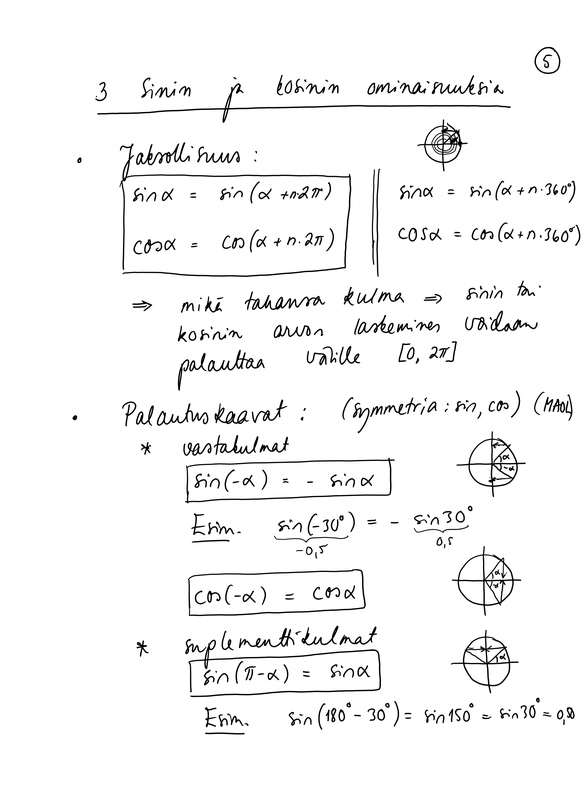 5
3 Sinin ja kosinin ominaisuuksia
• Jaksollisuus :
sinα = sin(α + n·2π)
cosα = cos(α + n·2π)
sinα = sin(α + n·360°)
cosα = cos(α + n·360°)
⇒ mikä tahansa kulma ⇒ sinin tai
kosinin arvon laskeminen voidaan
palauttaa välille [0, 2π]
• Palautuskaavat : (symmetria : sin, cos) (MAOL)
* vastakulmat
α
-α
sin(-α) = - sinα
Esim. sin(-30°) = - sin30°
-0,5 0,5
α
cos(-α) = cosα
* suplementtikulmat
α
sin(π-α) = sinα
Esim. sin(180° - 30°) = sin150° = sin30° = 0,50